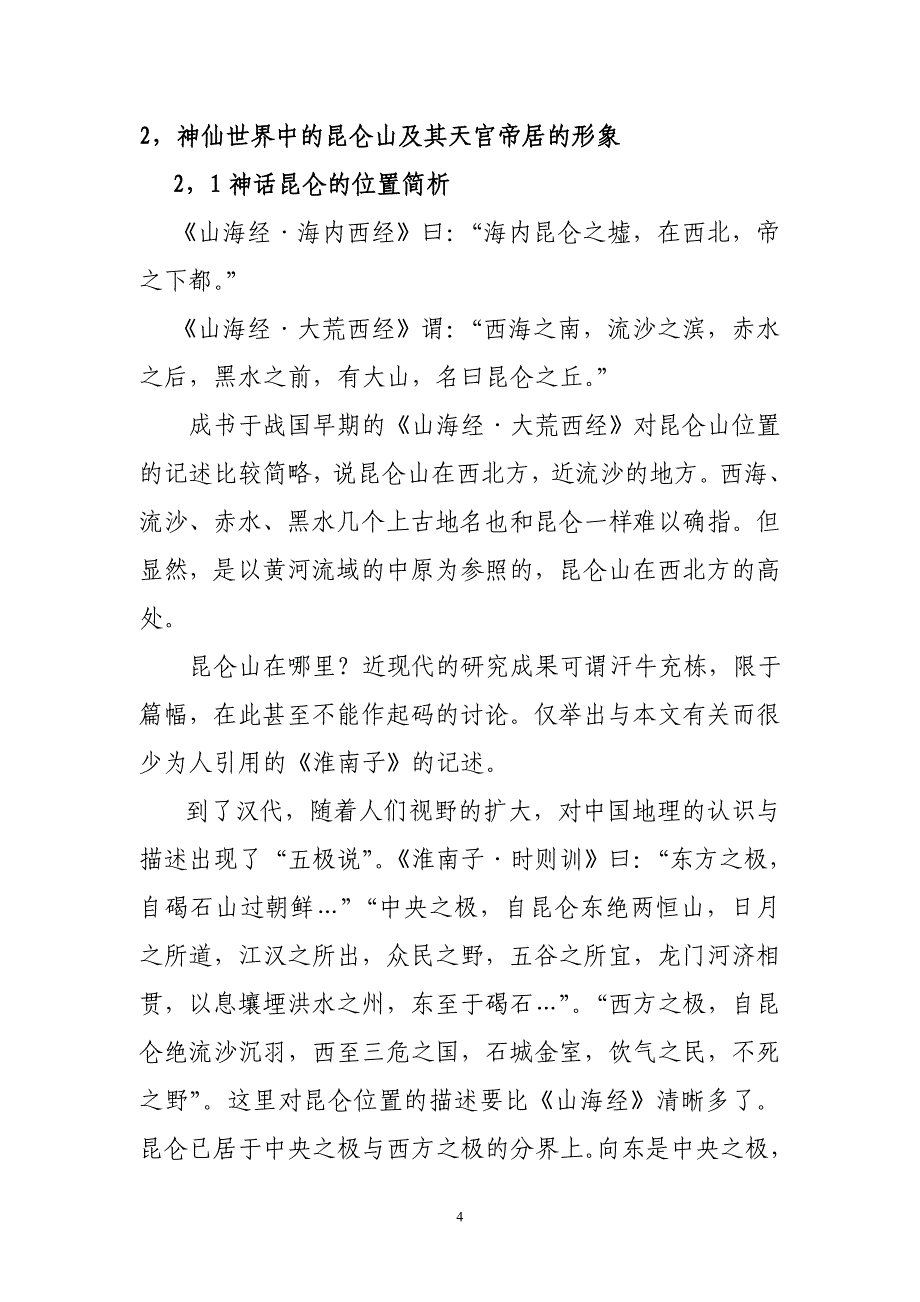 2，神仙世界中的昆仑山及其天官帝居的形象
2，1 神话昆仑的位置简析
《山海经·海内西经》曰：“海内昆仑之墟，在西北，帝
之下都。”
《山海经·大荒西经》谓：“西海之南，流沙之滨，赤水
之后，黑水之前，有大山，名曰昆仑之丘。”
成书于战国早期的《山海经·大荒西经》对昆仑山位置
的记述比较简略，说昆仑山在西北方，近流沙的地方。西海、
流沙、赤水、黑水几个上古地名也和昆仑一样难以确指。但
显然，是以黄河流域的中原为参照的，昆仑山在西北方的高
处。
昆仑山在哪里？近现代的研究成果可谓汗牛充栋，限于
篇幅，在此甚至不能作起码的讨论。仅举出与本文有关而很
少为人引用的《淮南子》的记述。
到了汉代，随着人们视野的扩大，对中国地理的认识与
描述出现了“五极说”。《淮南子·时则训》曰：“东方之极，
自碣石山过朝鲜…”“中央之极，自昆仑东绝两恒山，日月
之所道，江汉之所出，众民之野，五谷之所宜，龙门河济相
贯，以息壤堙洪水之州，东至于碣石…”。“西方之极，自昆
仑绝流沙沉羽，西至三危之国，石城金室，饮气之民，不死
之野”。这里对昆仑位置的描述要比《山海经》清晰多了。
昆仑已居于中央之极与西方之极的分界上。向东是中央之极，
4